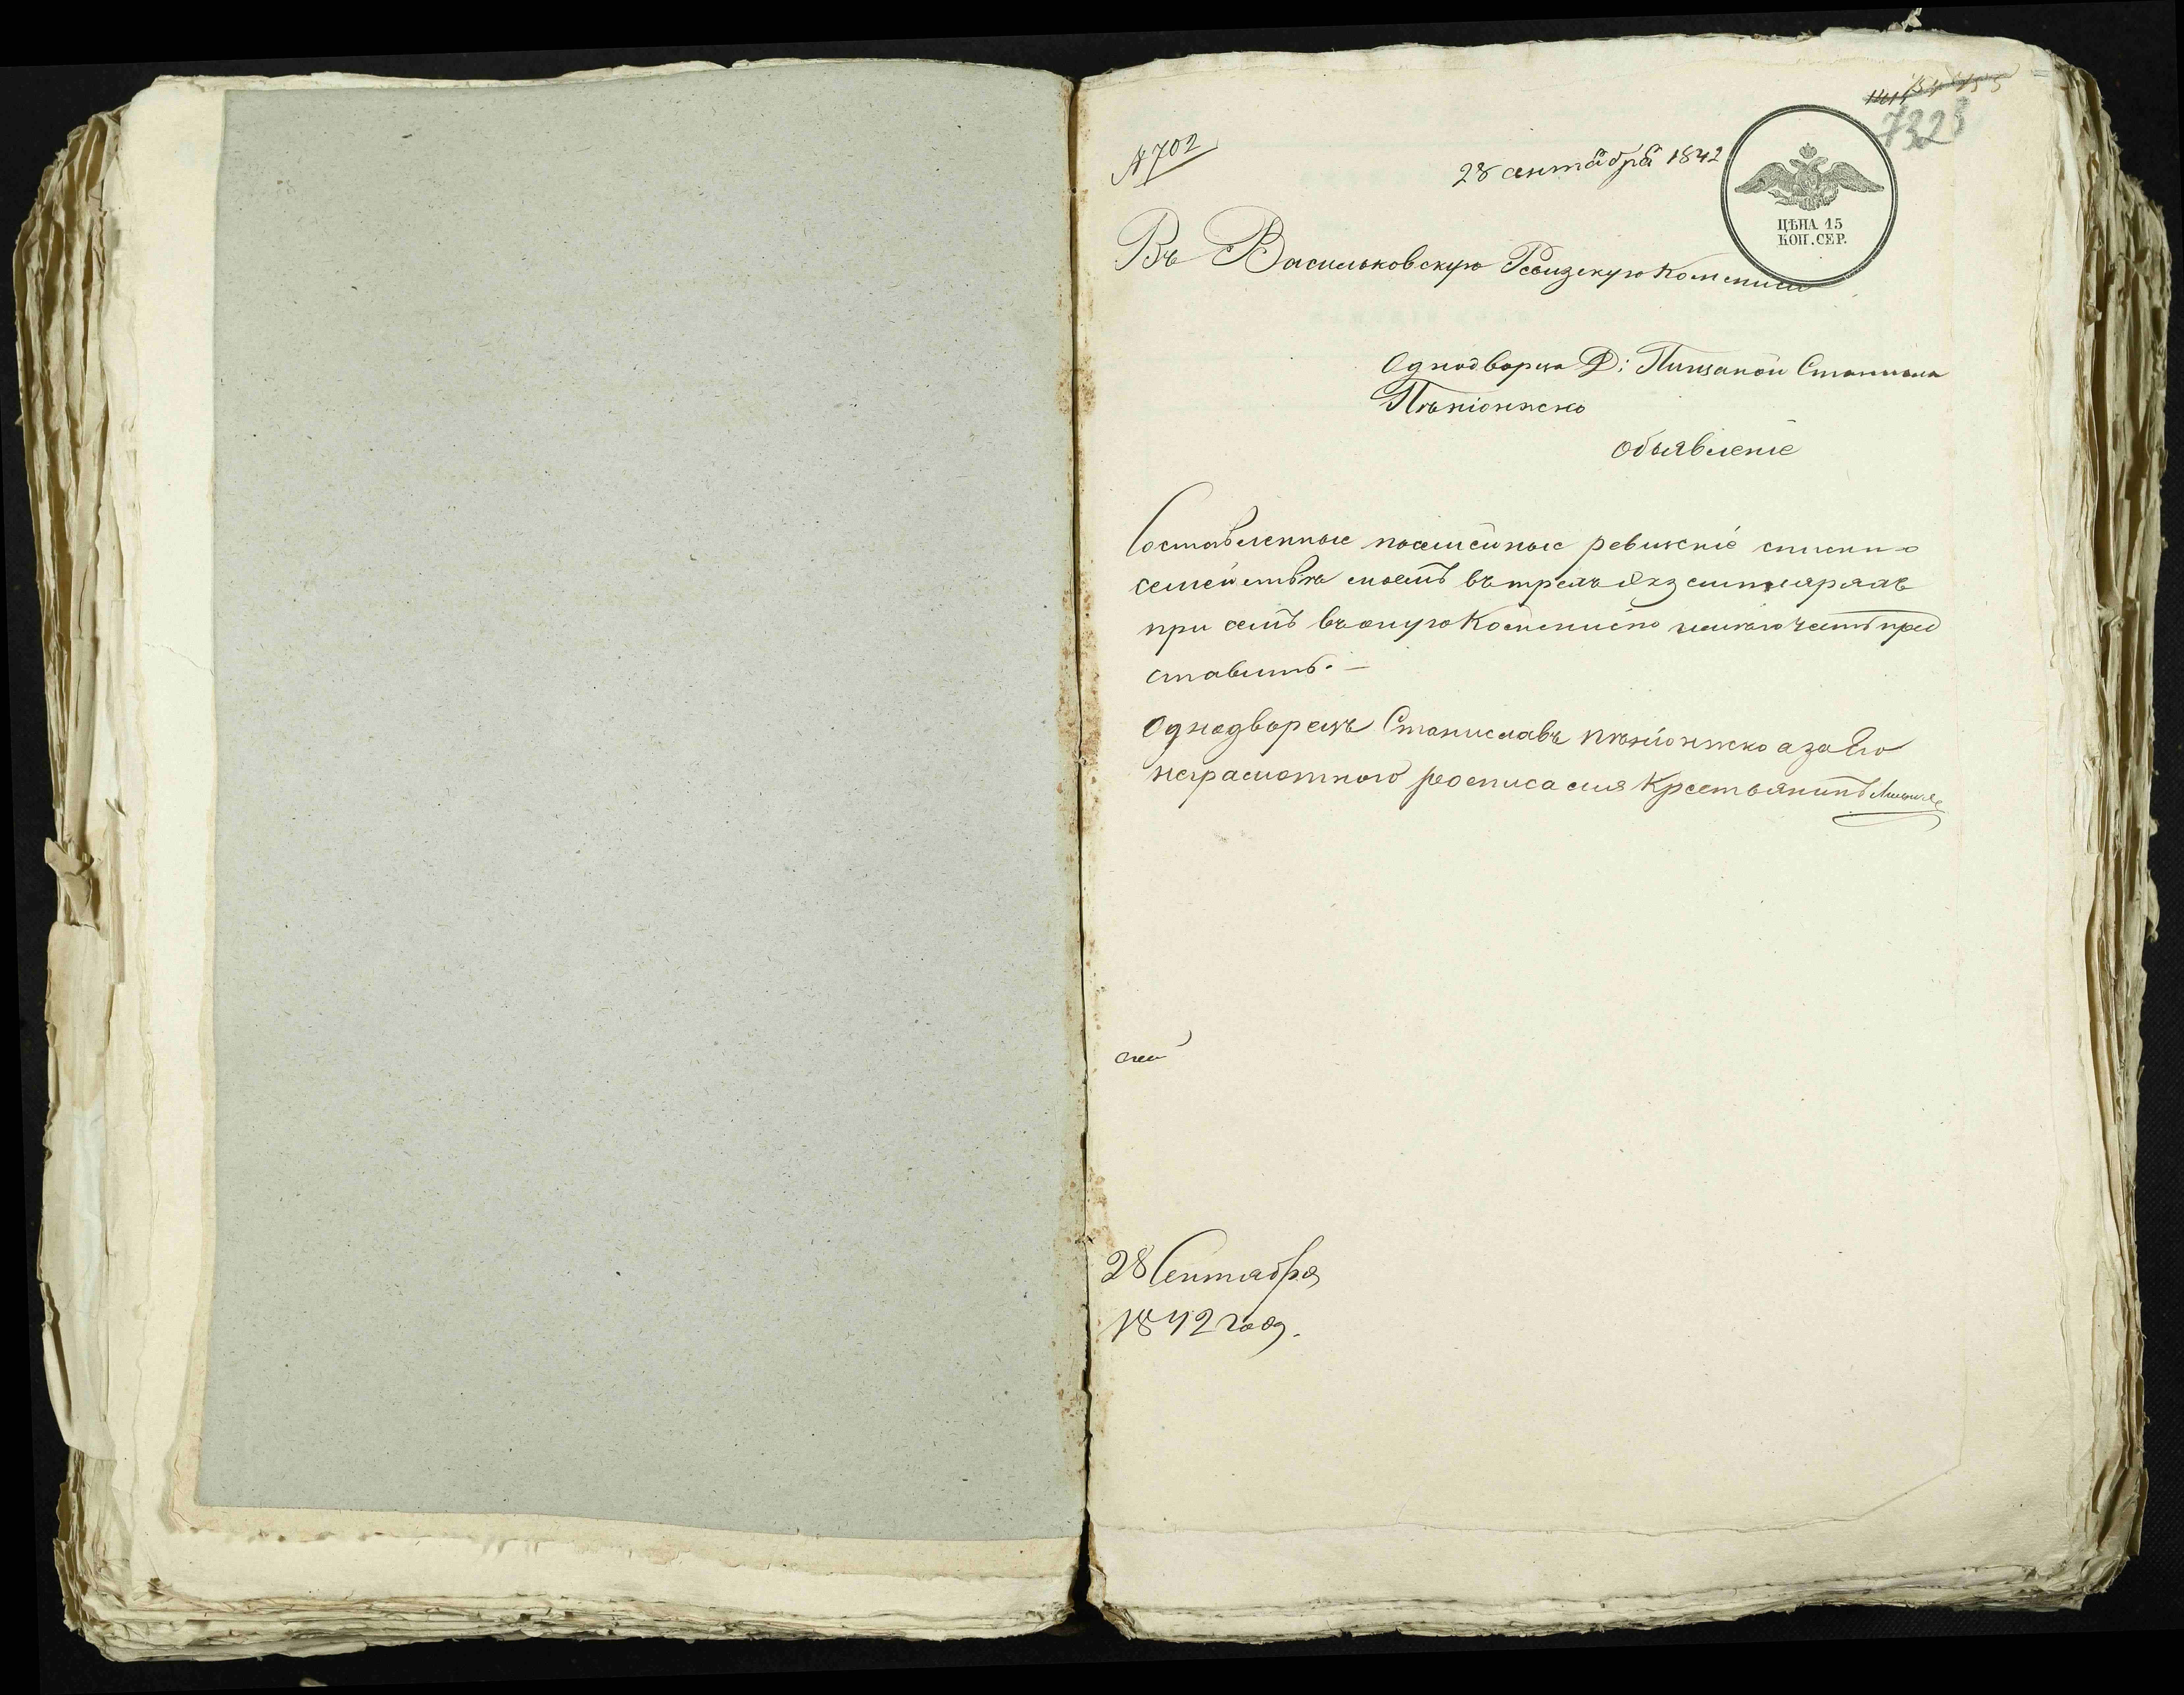 № 702
28 сентября 1842
7323
ЦѢНА 15
КОП. СЕР.
Въ Васильковскую Ревизскую Коммисiю
Однодворца Д: Пинчаной Станислава
Пѣнiонжко
Объявленiе
Составленные посемейные ревижскiе списки о
семействѣ моемъ въ трехъ Экземплярахъ
при семъ въ оную Коммисiю имѣю честь пред
ставить. —
Однодворецъ Станиславъ Пѣнiонжко а за Его
неграмотного росписался Крестьянинъ
28 Сентября
1842 года.